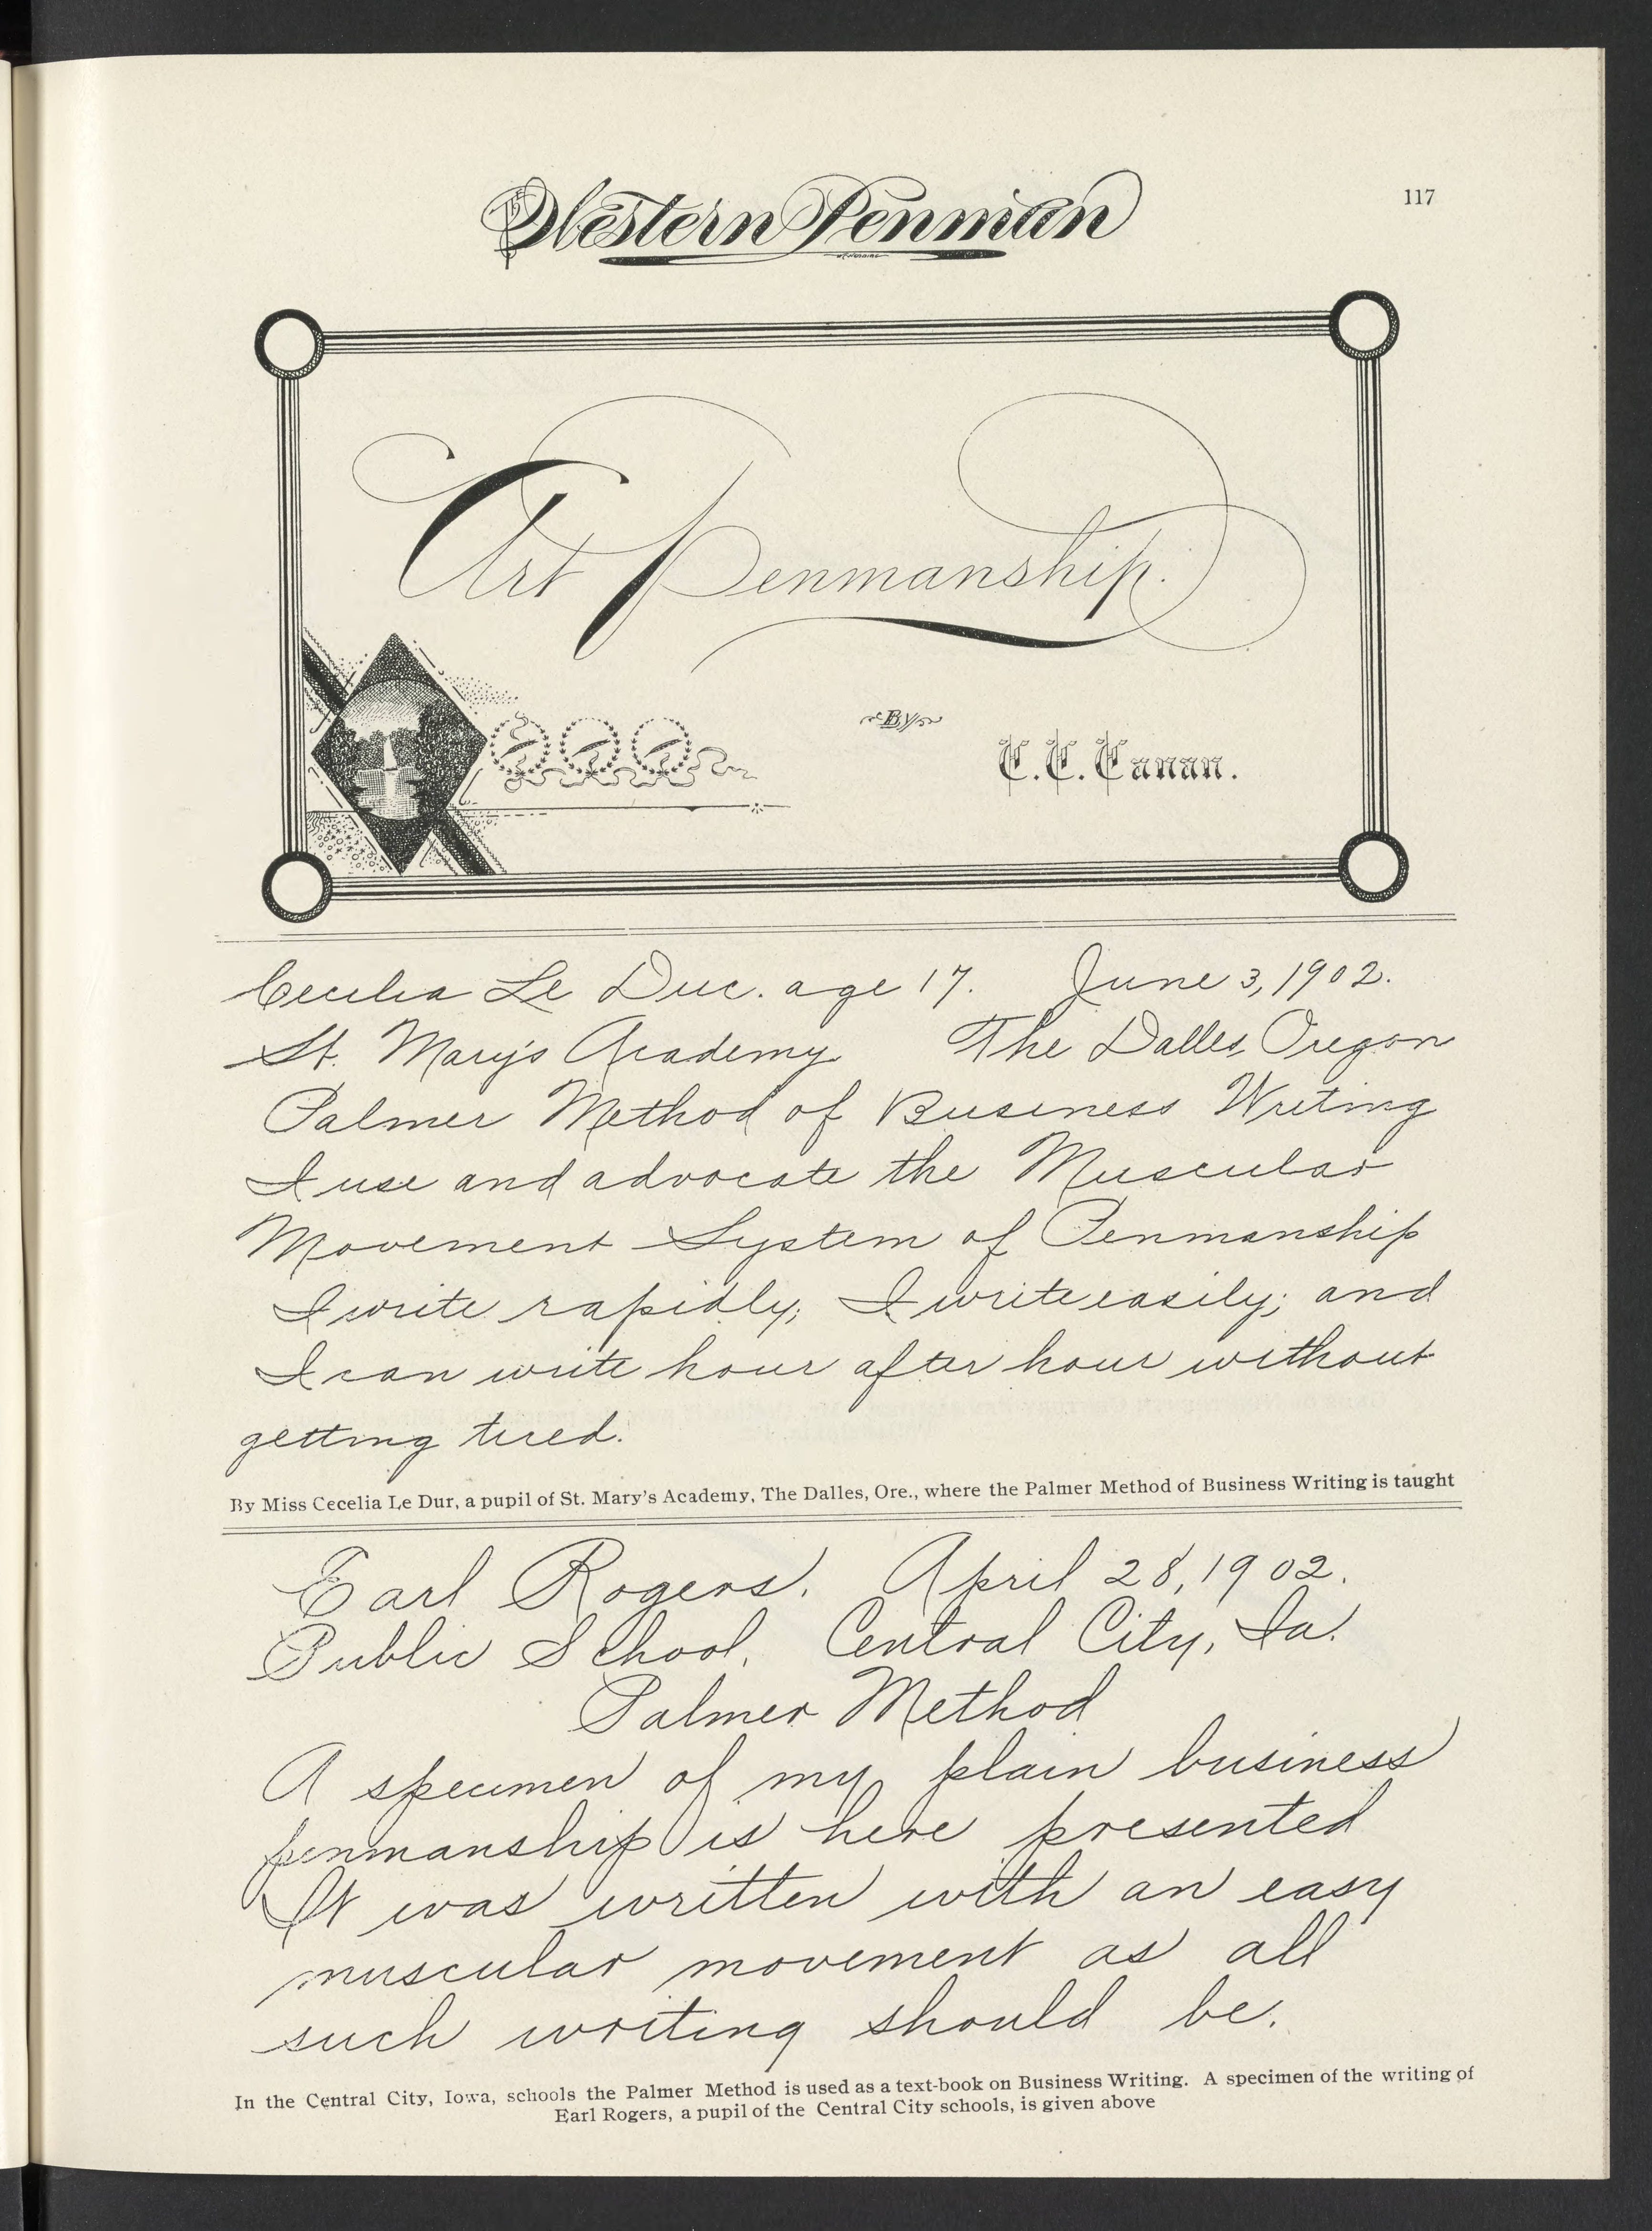 The Western Penman
117
Art Penmanship.
By
C.C. Canan.
Cecelia Le Duc. age 17. June 3, 1902.
St. Mary's Academy The Dalles, Oregon
Palmer Method of Business Writing
I use and advocate the Muscular
Movement System of Penmanship
I write rapidly; I write easily; and
I can write hour after hour without
getting tired.
By Miss Cecelia Le Dur, a pupil of St. Mary's Academy, The Dalles, Ore., where the Palmer Method of Business Writing is taught
Earl Rogers. April 28, 1902.
Public School, Central City, Ia.
Palmer Method
A specimen of my plain business
penmanship is here presented
It was written with an easy
muscular movement as all
such writing should be.
In the Central City, Iowa, schools the Palmer Method is used as a text-book on Business Writing. A specimen of the writing of
Earl Rogers, a pupil of the Central City schools, is given above